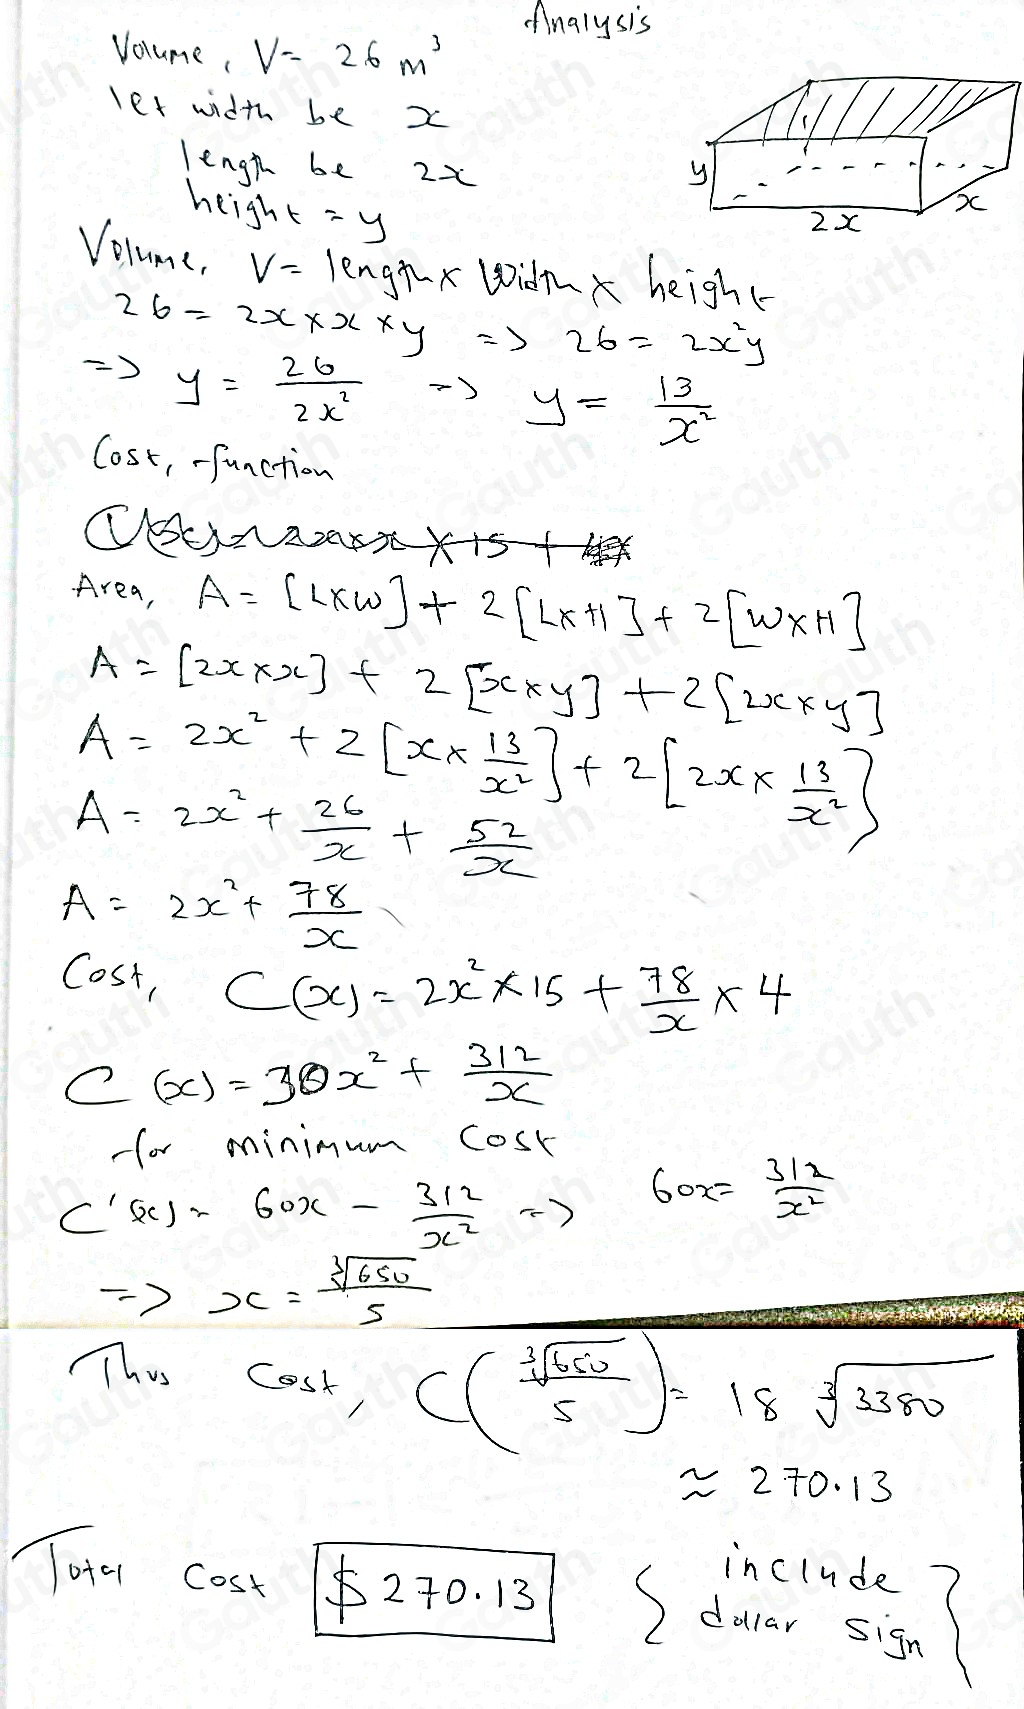 Analysis
Volume, V = 26 m³
let width be x
length be 2x
height = y
y
2x
x
Volume, V = length x Width x height
26 = 2x × x × y => 26 = 2x²y
=> y = 26/2x² => y = 13/x²
Cost, function
Area, A = [L×W] + 2[L×H] + 2[W×H]
A = [2x × x] + 2[x × y] + 2[2x × y]
A = 2x² + 2[x × 13/x²] + 2[2x × 13/x²]
A = 2x² + 26/x + 52/x
A = 2x² + 78/x
Cost, C(x) = 2x² × 15 + 78/x × 4
C(x) = 30x² + 312/x
for minimum cost
C'(x) = 60x - 312/x² => 60x = 312/x²
=> x = ∛650/5
Thus Cost, C(∛650/5) = 18 ∛3380
≈ 270.13
Total cost $270.13 { include dollar sign }